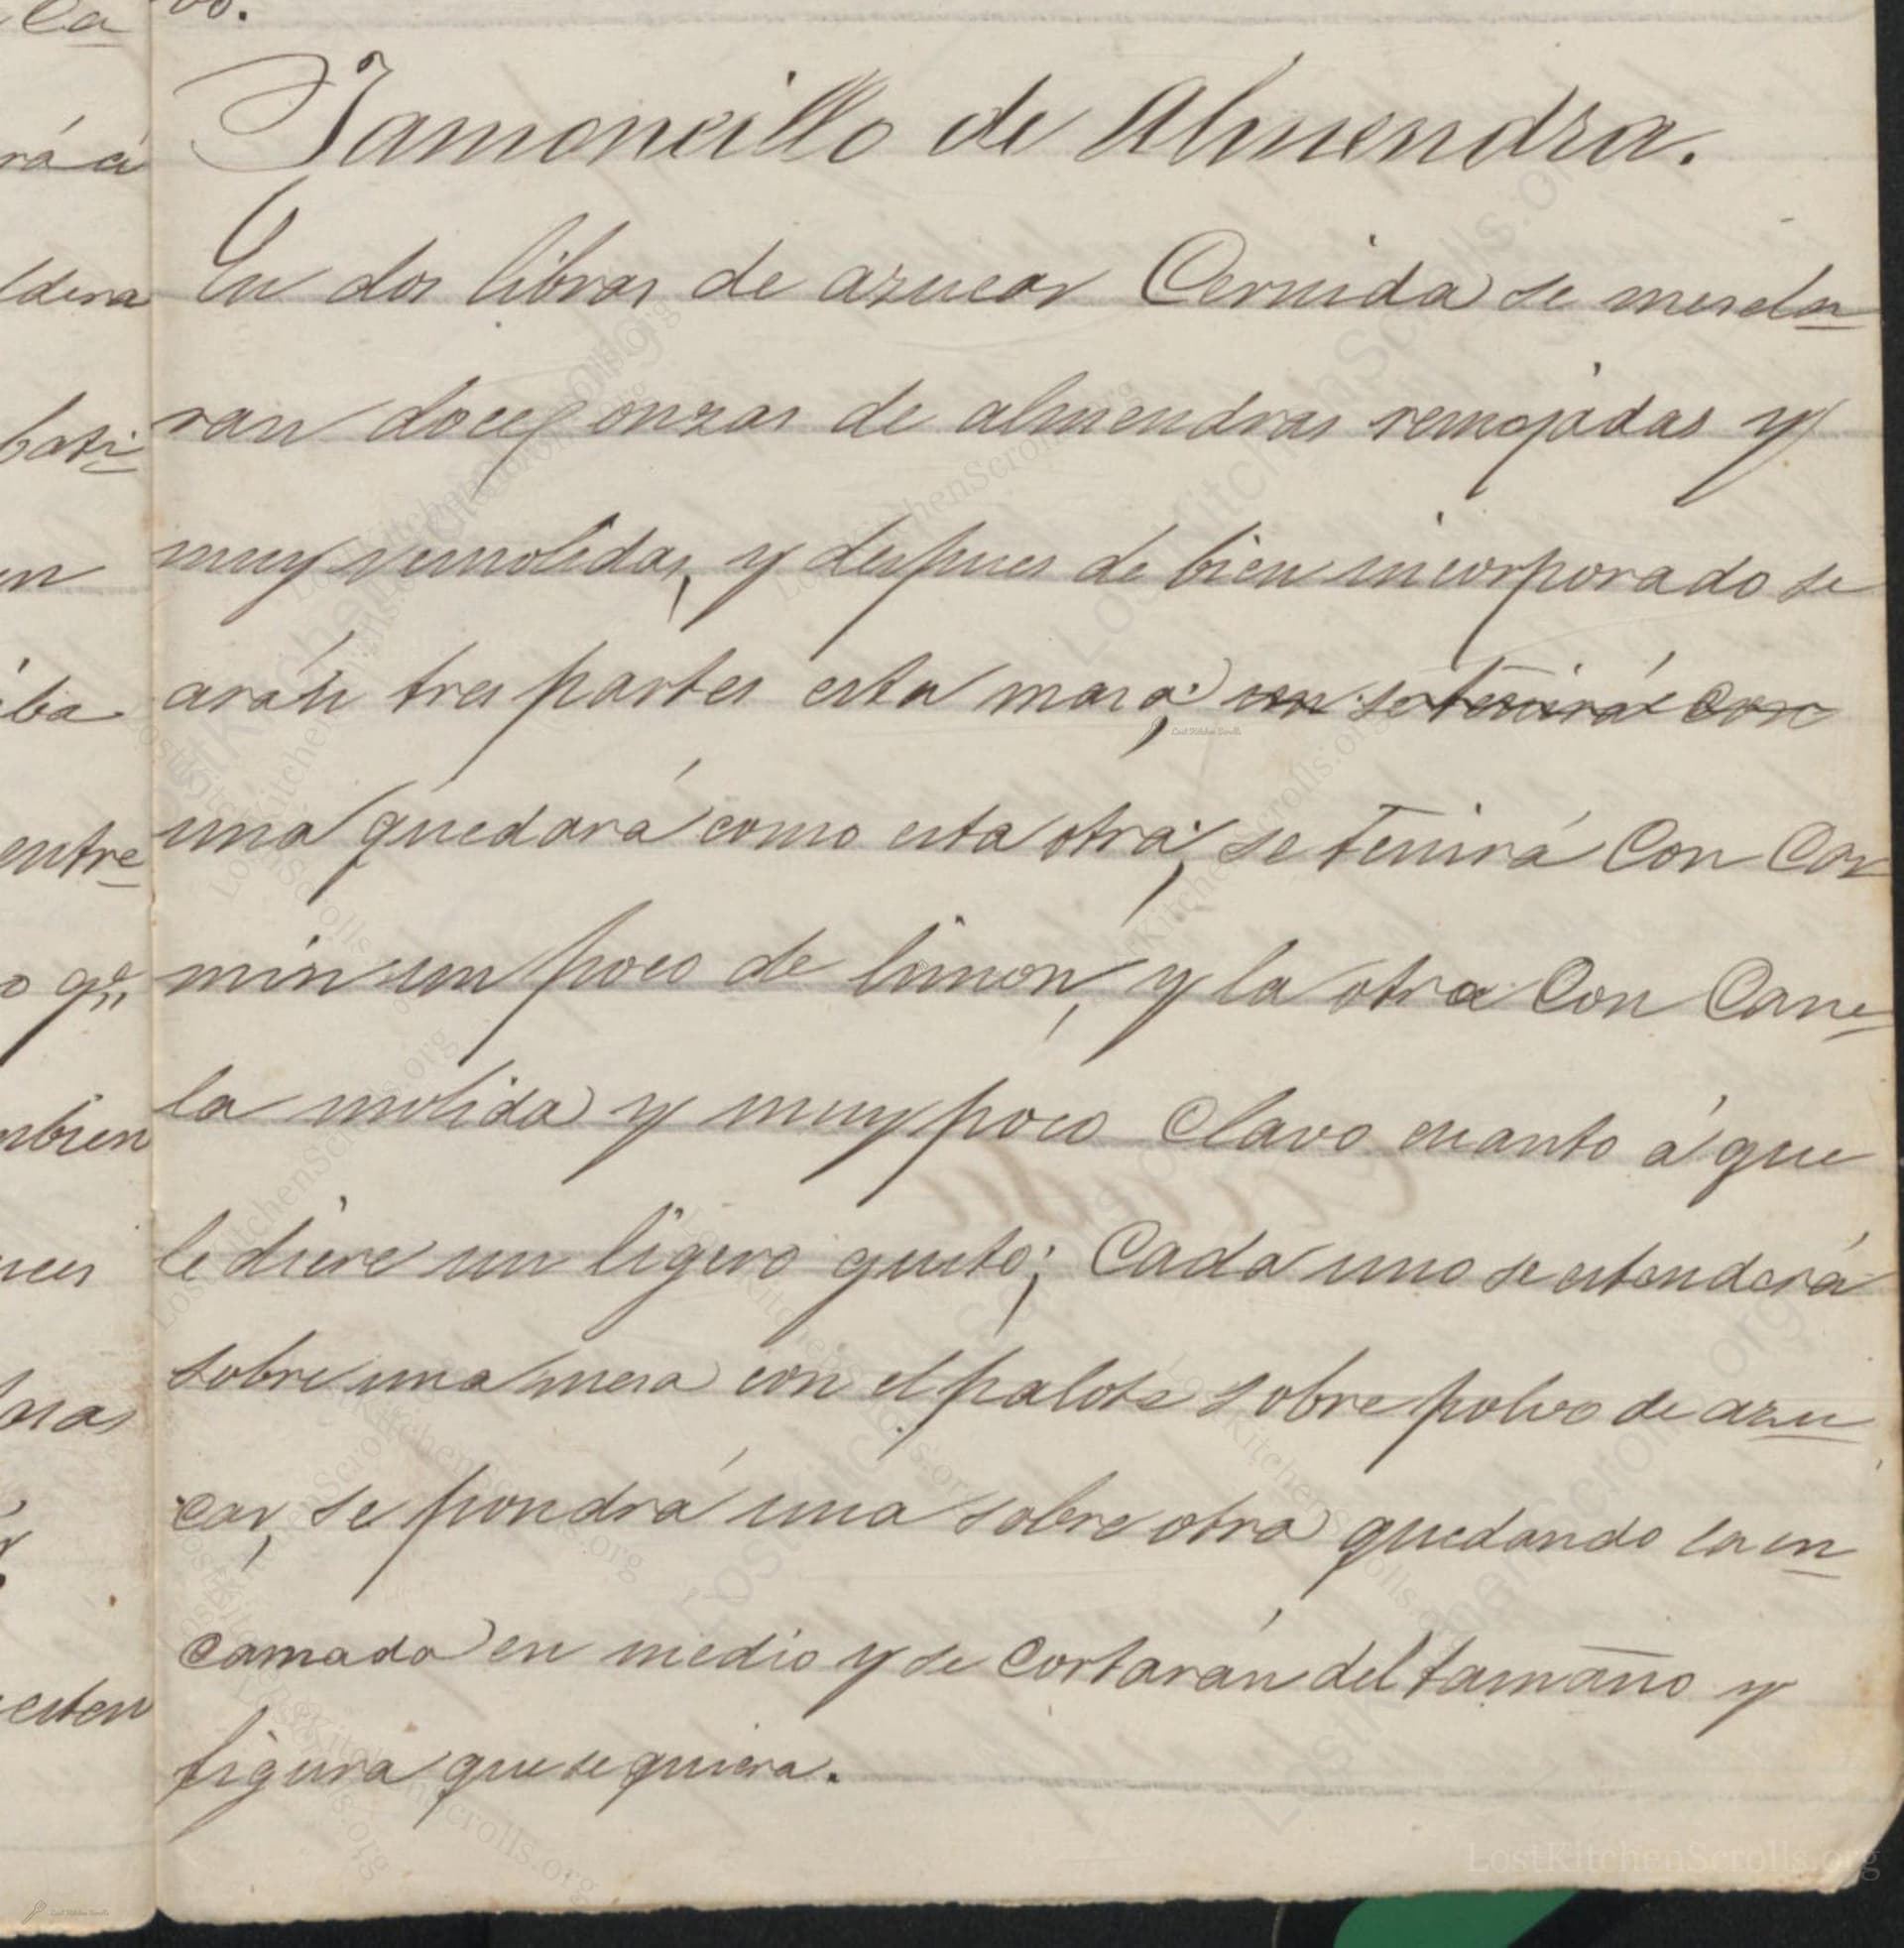 Jamoncillo de Almendra.
En dos libras de azucar Cernida se mescla
ran doce onzas de almendras remojadas y
muy remolidas, y despues de bien incorporado se
arán tres partes esta masa; un se teñirá con
una quedará como esta otra; se teñirá Con Car
min un poco de limon, y la otra Con Cane
la molida y muy poco Clavo cuanto á que
le diere un ligero gusto; Cada uno se estenderá
sobre una mesa con el palote sobre polvo de azu
car, se pondrá una sobre otra quedando la en
carnada en medio y se Cortarán del tamaño y
figura que se quiera.
LostKitchenScrolls.org